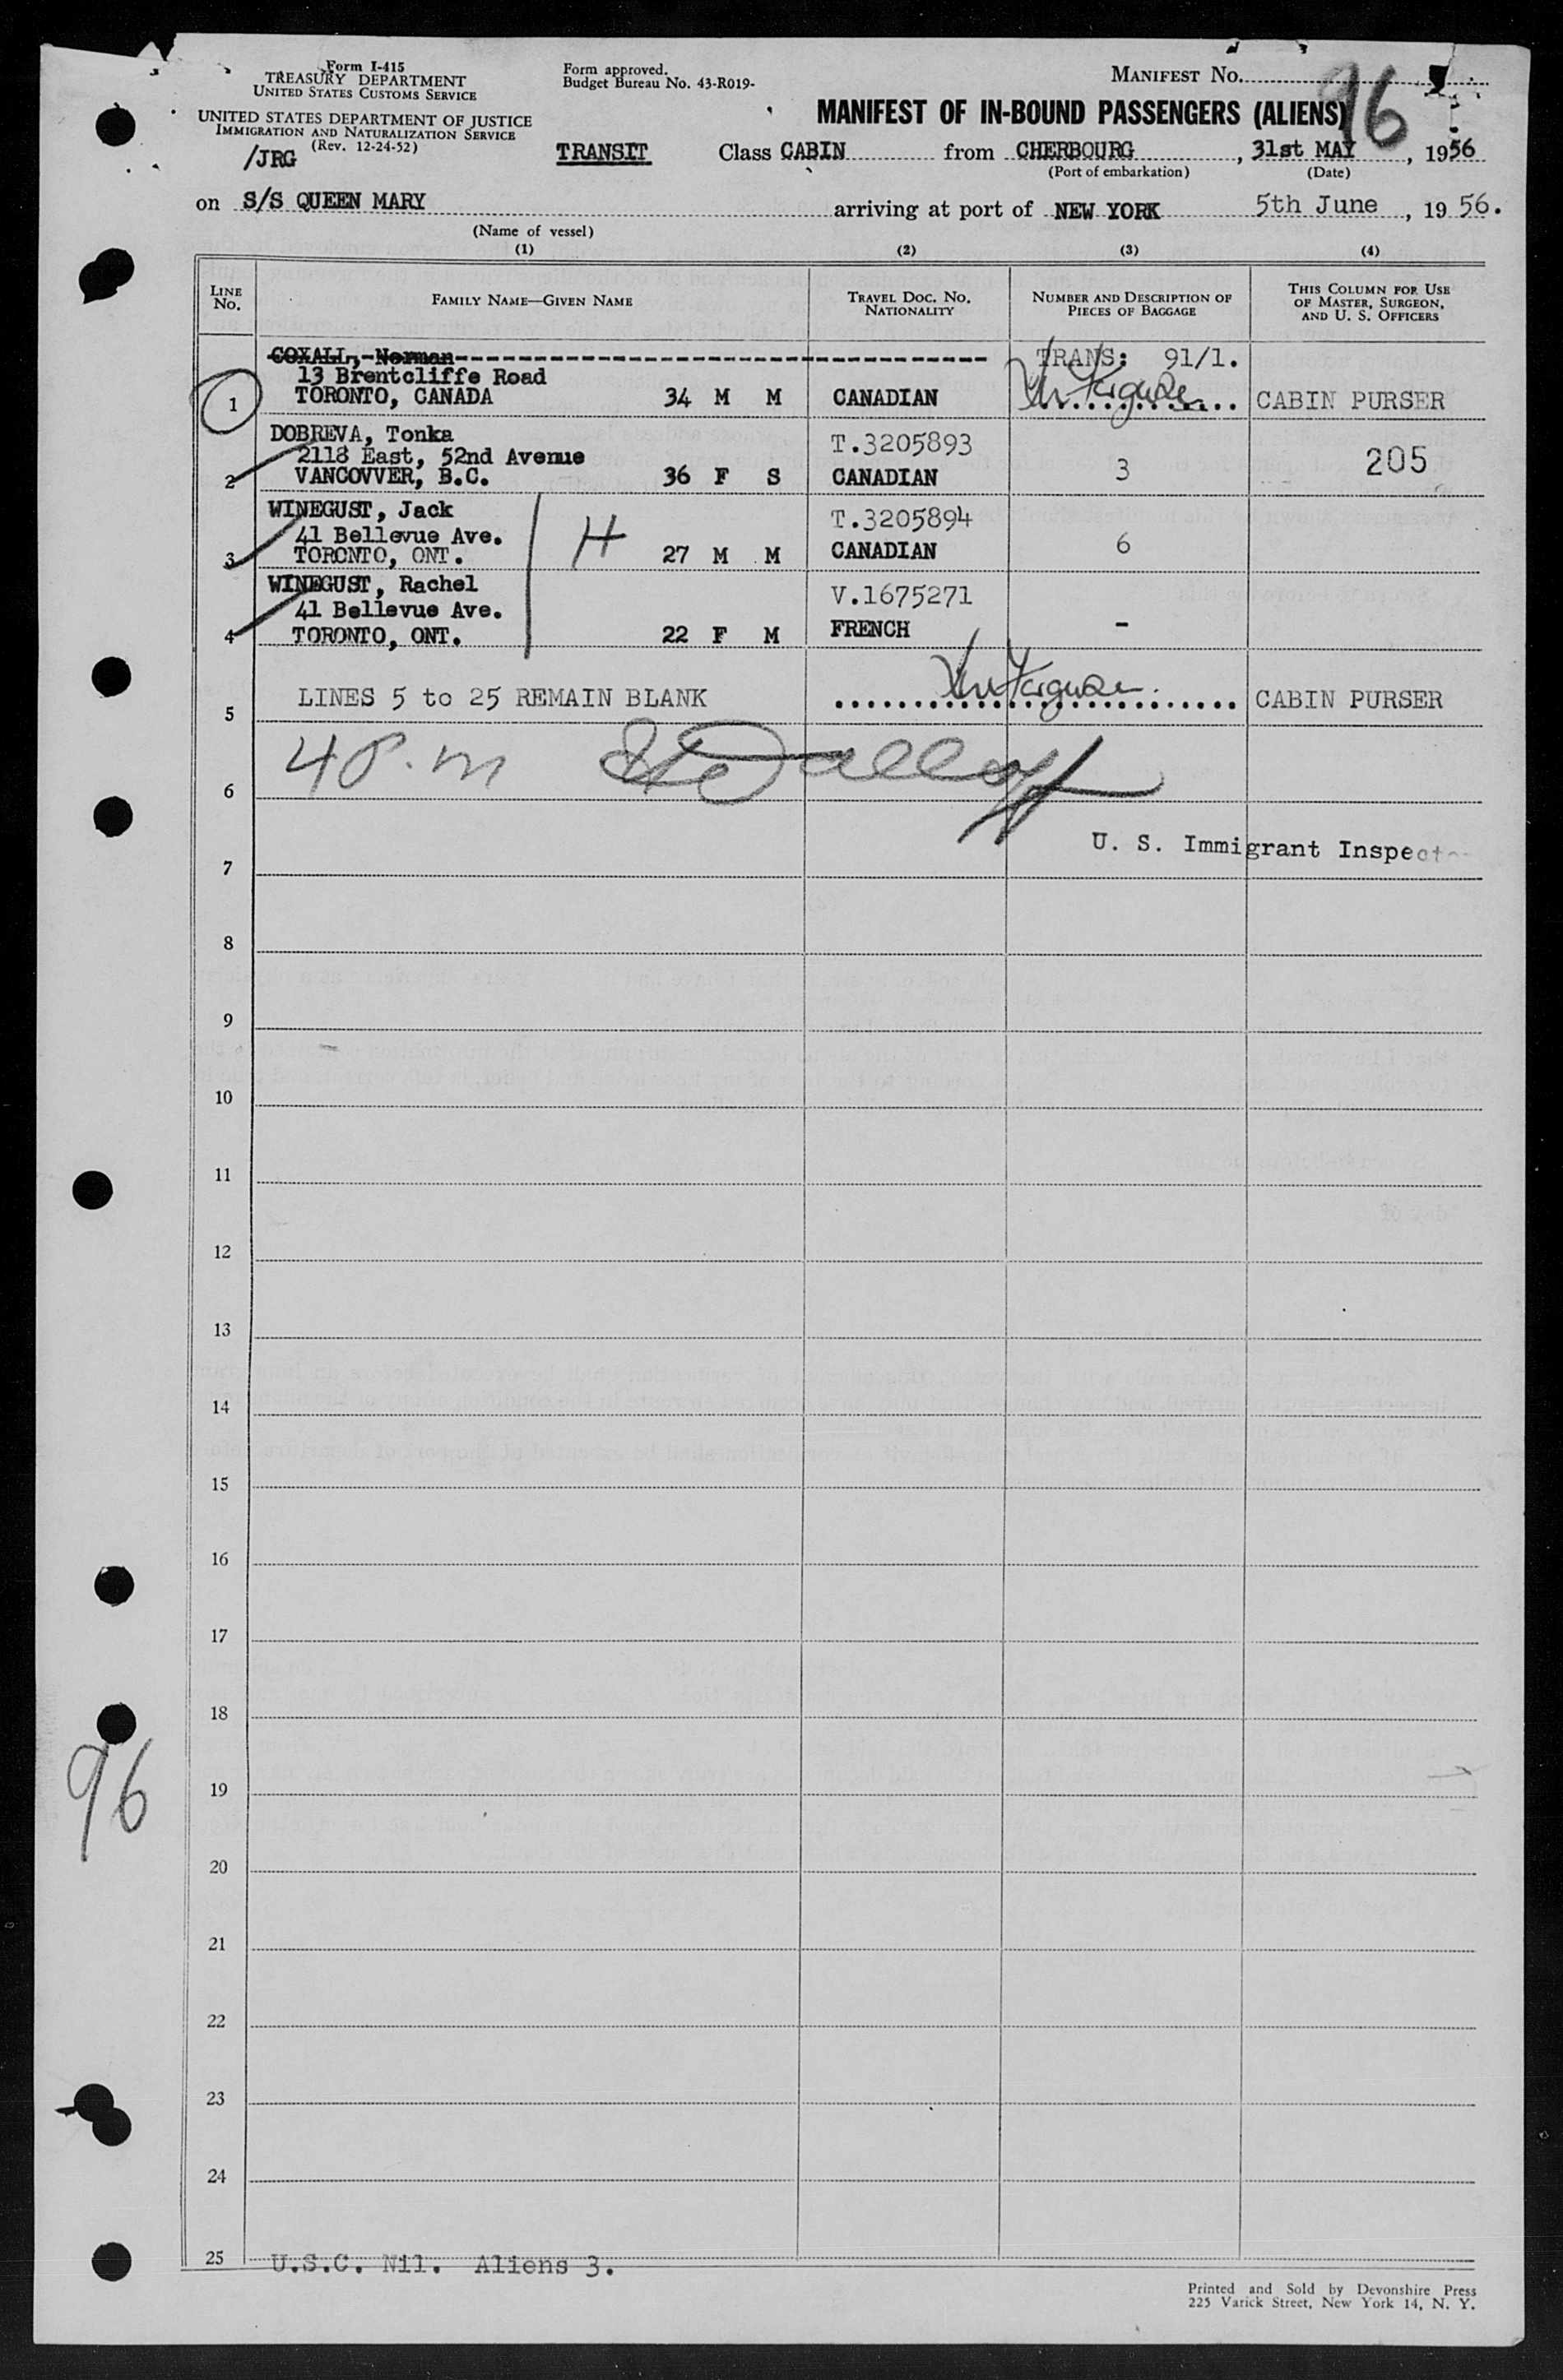 Form I-415
TREASURY DEPARTMENT
UNITED STATES CUSTOMS SERVICE
UNITED STATES DEPARTMENT OF JUSTICE
IMMIGRATION AND NATURALIZATION SERVICE
(Rev. 12-24-52)
/JRG
Form approved.
Budget Bureau No. 43-R019-
MANIFEST No.
96
MANIFEST OF IN-BOUND PASSENGERS (ALIENS)
TRANSIT Class CABIN from CHERBOURG, 31st MAY, 1956
(Port of embarkation) (Date)
on S/S QUEEN MARY arriving at port of NEW YORK 5th June, 1956.
(Name of vessel)
(1) (2) (3) (4)
LINE No. FAMILY NAME—GIVEN NAME TRAVEL DOC. NO. NATIONALITY NUMBER AND DESCRIPTION OF PIECES OF BAGGAGE THIS COLUMN FOR USE OF MASTER, SURGEON, AND U. S. OFFICERS
COXALL, Norman TRANS: 91/1.
13 Brentcliffe Road
1 TORONTO, CANADA 34 M M CANADIAN CABIN PURSER
DOBREVA, Tonka T.3205893
2118 East, 52nd Avenue
2 VANCOVVER, B.C. 36 F S CANADIAN 3 205
WINEGUST, Jack T.3205894
41 Bellevue Ave. H
3 TORONTO, ONT. 27 M M CANADIAN 6
WINEGUST, Rachel V.1675271
41 Bellevue Ave.
4 TORONTO, ONT. 22 F M FRENCH -
5 LINES 5 to 25 REMAIN BLANK CABIN PURSER
4 P.m
6
U. S. Immigrant Inspector
7
8
9
10
11
12
13
14
15
16
17
18
96
19
20
21
22
23
24
25 U.S.C. Nil. Aliens 3.
Printed and Sold by Devonshire Press
225 Varick Street, New York 14, N. Y.